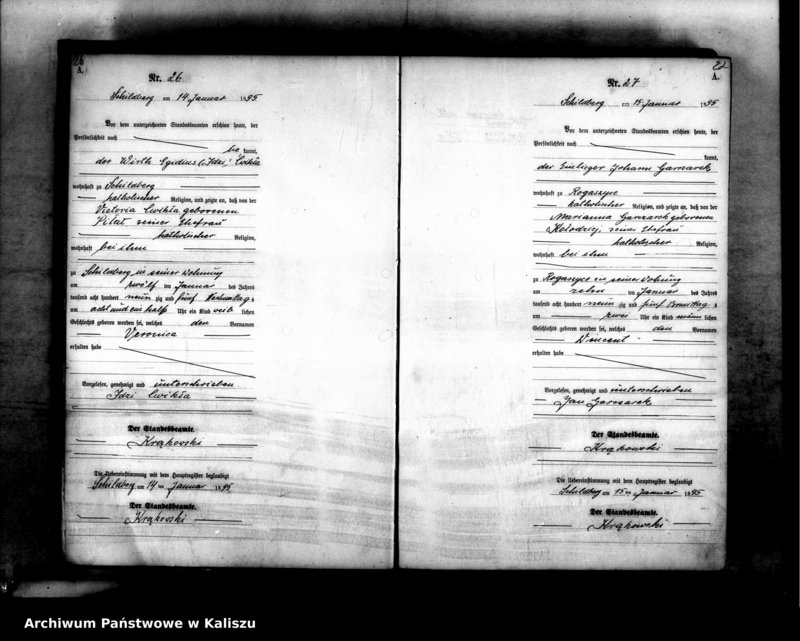 26
A.
Nr. 26
Schildberg am 14 Januar 1895
Vor dem unterzeichneten Standesbeamten erschien heute, der
Persönlichkeit nach
be kannt,
der Wirth Egidius (Idzi) Cwikła
wohnhaft zu Schildberg
katholischer Religion, und zeigte an, daß von der
Victoria Cwikła geborenen
seiner Ehefrau
katholischer Religion,
wohnhaft bei ihm
zu Schildberg in seiner Wohnung
am zwölf ten Januar des Jahres
tausend acht hundert neun zig und fünf Nachmittag s
um acht und ein halb Uhr ein Kind weib lichen
Geschlechts geboren worden sei, welches den Vornamen
Veronica
erhalten habe
Vorgelesen, genehmigt und unterschrieben
Idzi Cwikła
Der Standesbeamte.
Krąkowski
Die Uebereinstimmung mit dem Hauptregister beglaubigt
Schildberg am 14 ten Januar 1895
Der Standesbeamte.
Krąkowski
A.
Nr. 27
Schildberg am 15 Januar 1895
Vor dem unterzeichneten Standesbeamten erschien heute, der
Persönlichkeit nach
kannt,
der Einlieger Johann Garczarek
wohnhaft zu Rogaszyce
katholischer Religion, und zeigte an, daß von der
Marianna Garczarek geborenen
seiner Ehefrau
katholischer Religion,
wohnhaft bei ihm
zu Rogaszyce in seiner Wohnung
am zehn ten Januar des Jahres
tausend acht hundert neun zig und fünf Vormittag s
um zwei Uhr ein Kind männ lichen
Geschlechts geboren worden sei, welches den Vornamen
Vincent
erhalten habe
Vorgelesen, genehmigt und unterschrieben
Jan Garczarek
Der Standesbeamte.
Krąkowski
Die Uebereinstimmung mit dem Hauptregister beglaubigt
Schildberg am 15 ten Januar 1895
Der Standesbeamte.
Krąkowski
Archiwum Państwowe w Kaliszu